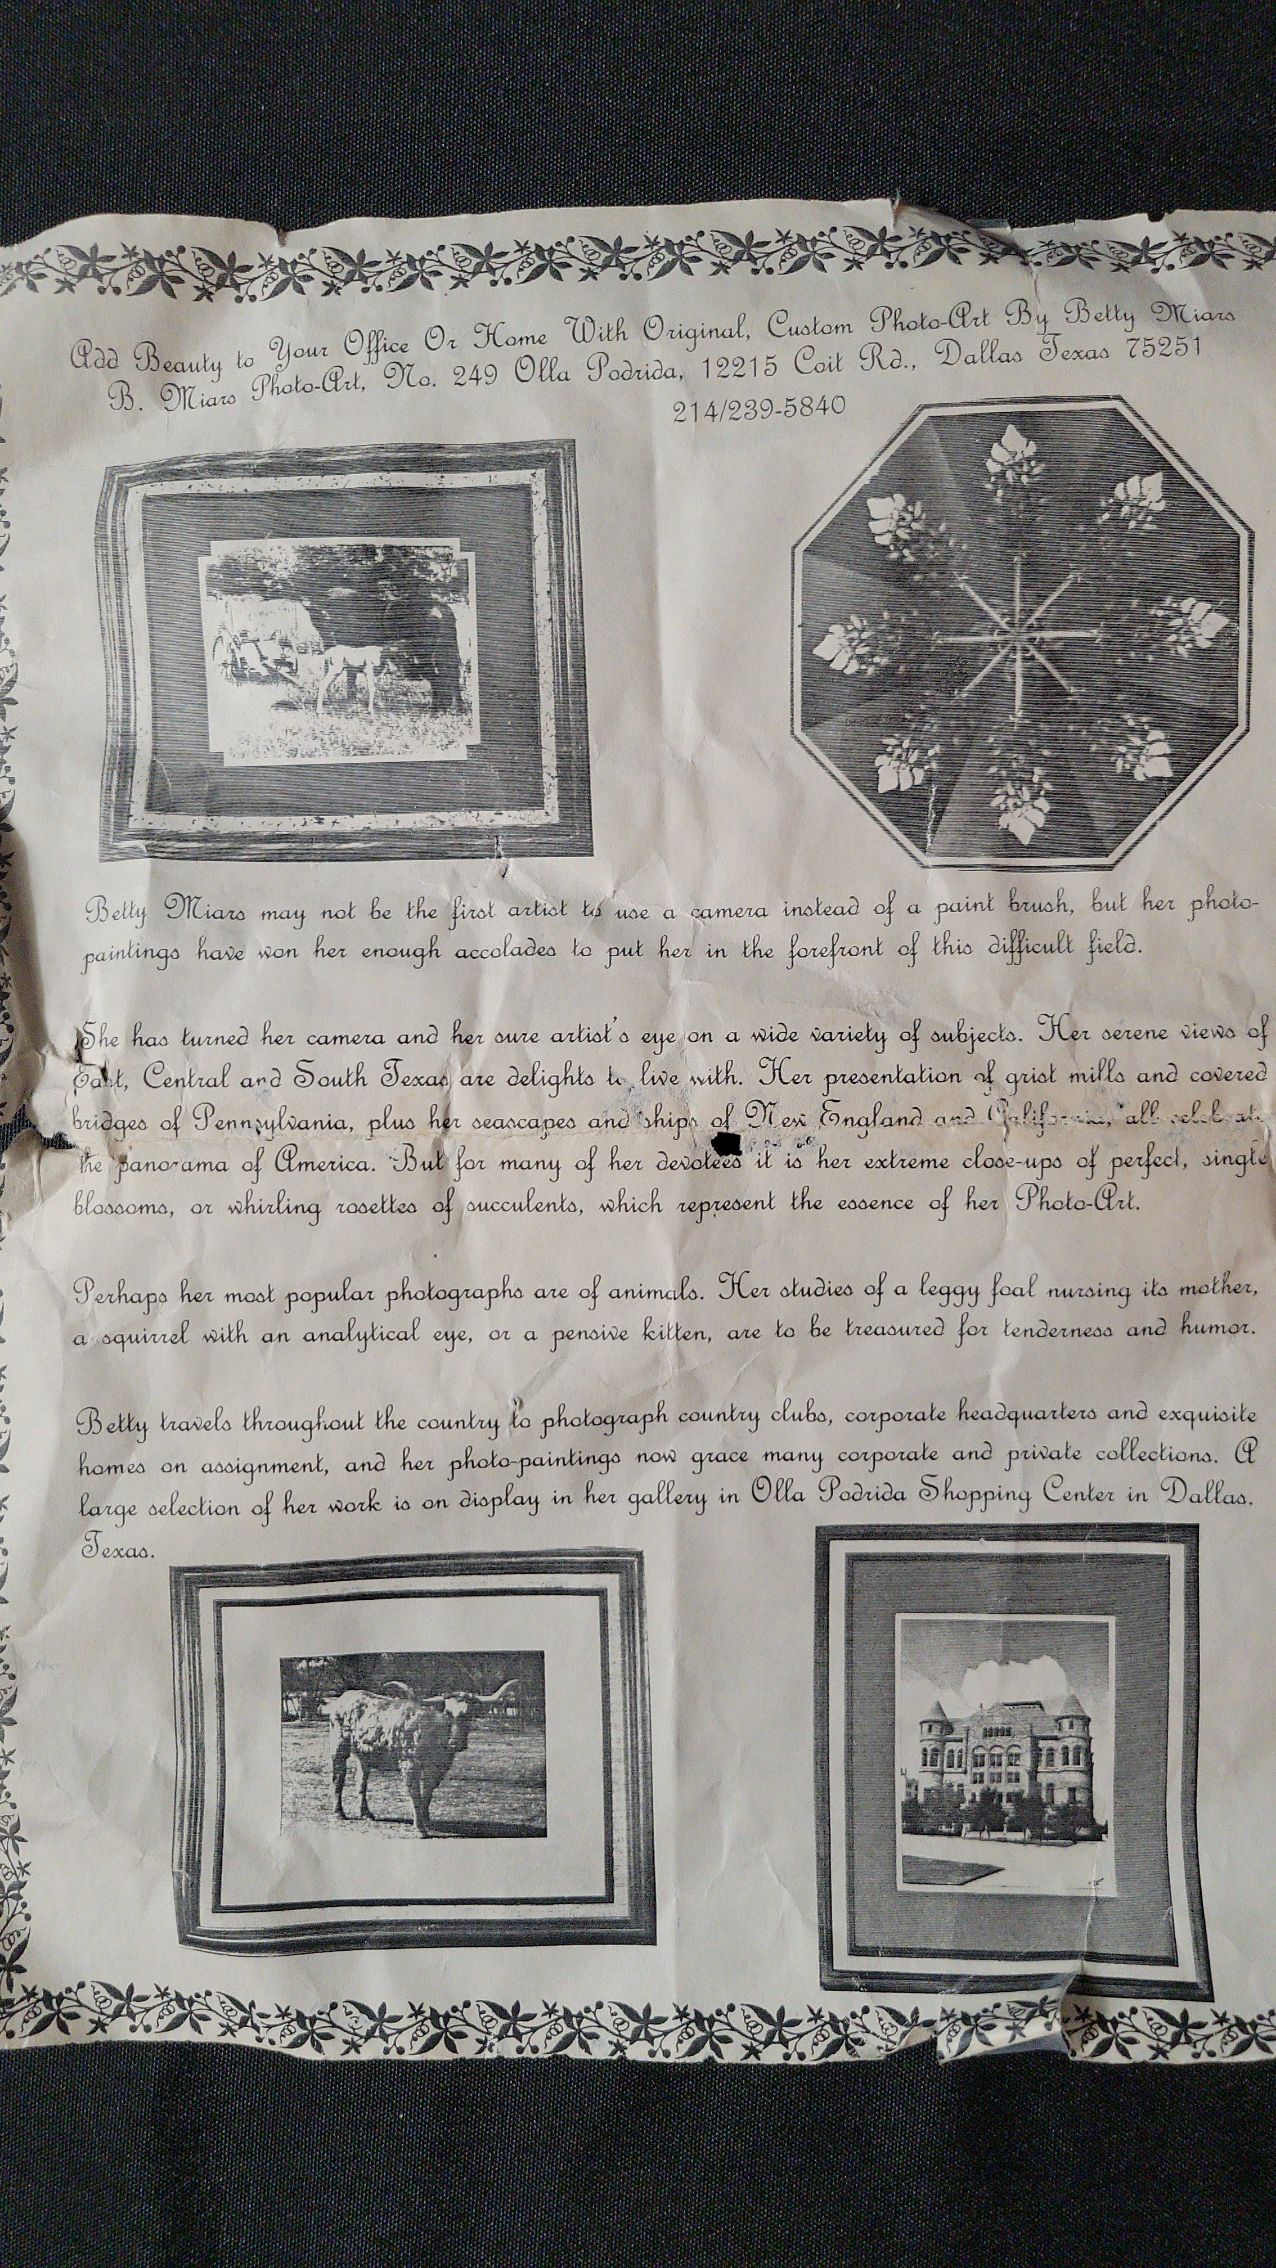 Add Beauty to Your Office Or Home With Original, Custom Photo-Art By Betty Miars
B. Miars Photo-Art, No. 249 Olla Podrida, 12215 Coit Rd., Dallas Texas 75251
214/239-5840
Betty Miars may not be the first artist to use a camera instead of a paint brush, but her photo-
paintings have won her enough accolades to put her in the forefront of this difficult field.
She has turned her camera and her sure artist's eye on a wide variety of subjects. Her serene views of
East, Central and South Texas are delights to live with. Her presentation of grist mills and covered
bridges of Pennsylvania, plus her seascapes and ships of New England and California, all
the panorama of America. But for many of her devotees it is her extreme close-ups of perfect, single
blossoms, or whirling rosettes of succulents, which represent the essence of her Photo-Art.
Perhaps her most popular photographs are of animals. Her studies of a leggy foal nursing its mother,
a squirrel with an analytical eye, or a pensive kitten, are to be treasured for tenderness and humor.
Betty travels throughout the country to photograph country clubs, corporate headquarters and exquisite
homes on assignment, and her photo-paintings now grace many corporate and private collections. A
large selection of her work is on display in her gallery in Olla Podrida Shopping Center in Dallas.
Texas.